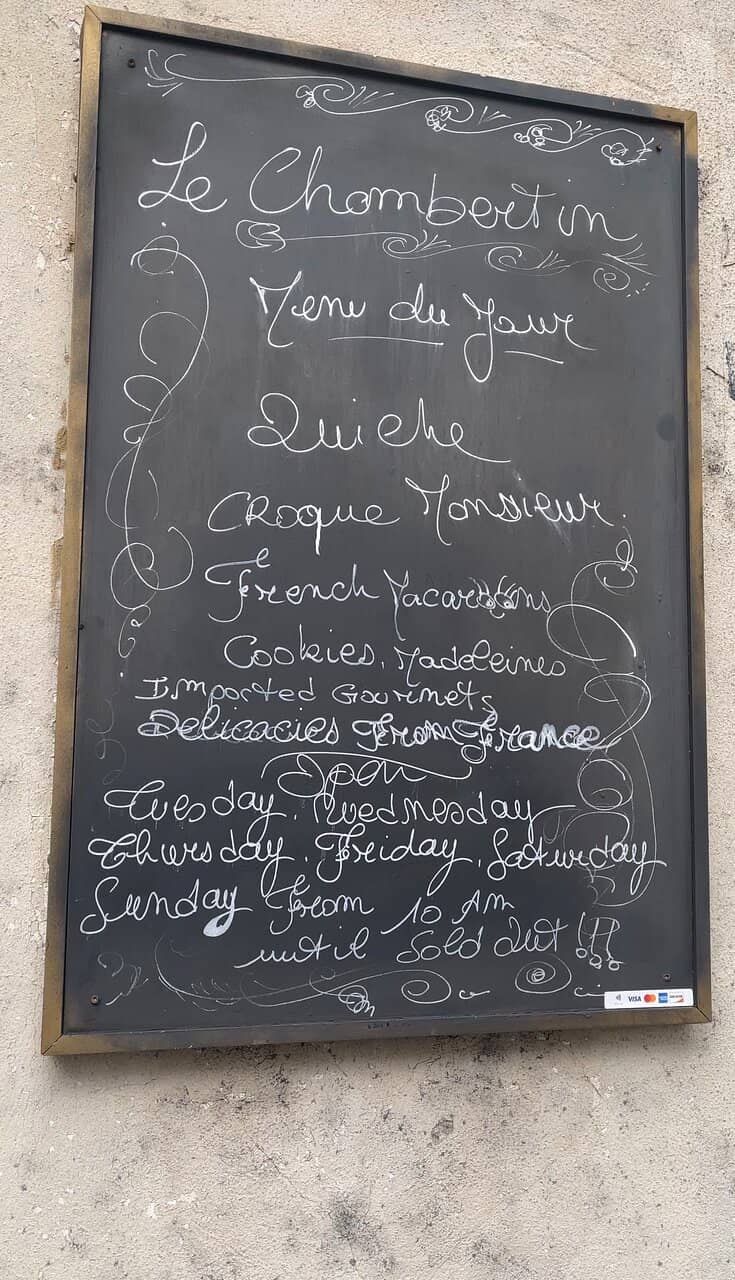 Le Chambertin
Menu du Jour
Quiche
CRoque Monsieur
French Macaroons
Cookies, Madeleines
Imported Gourmets
Delicacies From France
Open
Tuesday. Wednesday
Thursday. Friday. Saturday
Sunday From 10 AM
until Sold Out !!!
VISA